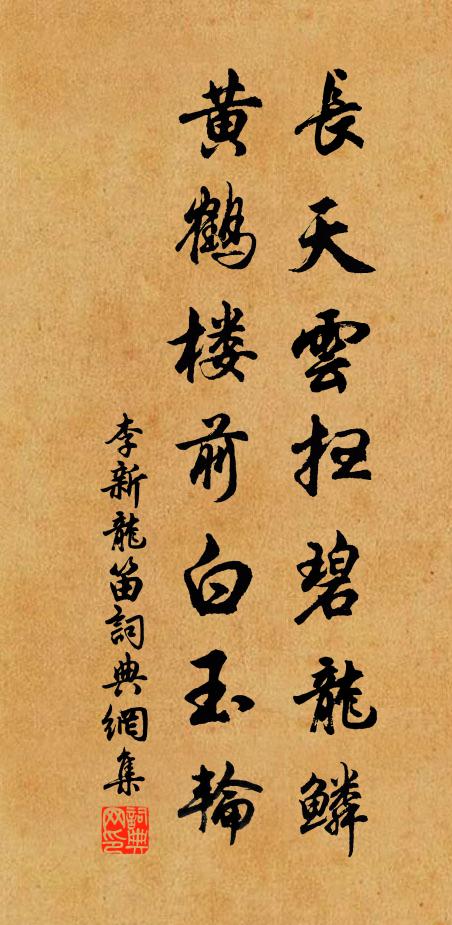 長天雲扫碧龍鱗
黄鶴楼前白玉輪
李新龍笛詞典網集
詞典网印